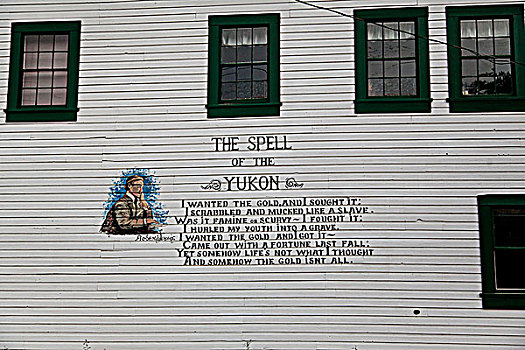 THE SPELL
OF THE
YUKON
I WANTED THE GOLD, AND I SOUGHT IT;
I SCRABBLED AND MUCKED LIKE A SLAVE.
WAS IT FAMINE OR SCURVY~I FOUGHT IT;
I HURLED MY YOUTH INTO A GRAVE.
I WANTED THE GOLD AND I GOT IT~
CAME OUT WITH A FORTUNE LAST FALL;
YET SOMEHOW LIFE'S NOT WHAT I THOUGHT
AND SOMEHOW THE GOLD ISNT ALL.